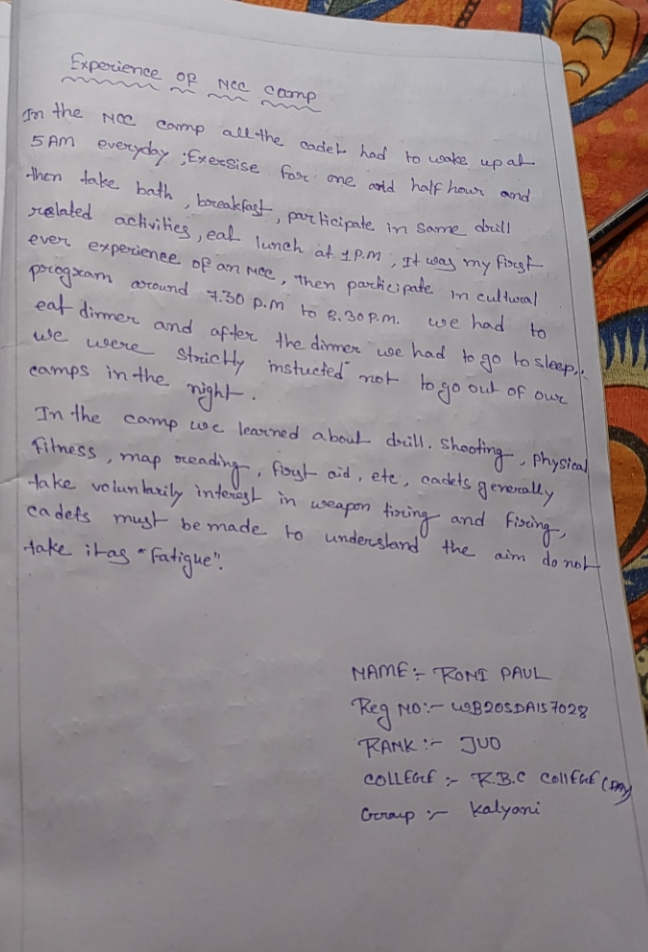 Experience of NCC camp
In the NCC camp all the cadet had to wake up at
5 AM everyday ; Exersise for one and half hour and
then take bath , breakfast , participate in some drill
related activities , eat lunch at 1 P.M , It was my first
ever experience of an NCC , then participate in cultural
program around 7.30 P.M to 8.30 P.M. we had to
eat dinner and after the dinner we had to go to sleep.
we were strictly instucted not to go out of our
camps in the night .
In the camp we learned about drill. shooting , physical
fitness , map reading , first aid , etc , cadets generally
take voluntarily interest in weapon firing and firing ,
cadets must be made to understand the aim do not
take it as "fatigue".
NAME :- RONI PAUL
Reg NO :- WB20SDA157028
RANK :- JUO
COLLEGE :- R.B.C COLLEGE (DAY)
Group :- Kalyani